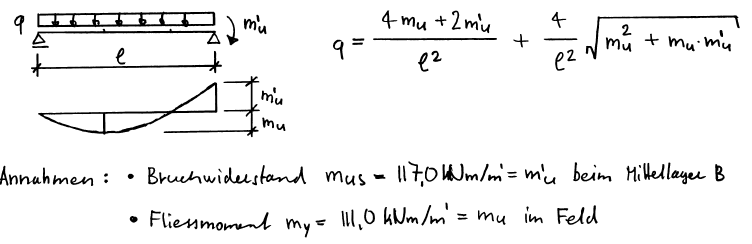 q
m'u
q = (4 mu + 2 m'u) / ℓ² + 4/ℓ² √(mu² + mu · m'u)
ℓ
m'u
mu
Annahmen : • Bruchwiderstand mus = 117,0 kNm/m' = m'u beim Mittellager B
• Fliessmoment my = 111,0 kNm/m' = mu im Feld